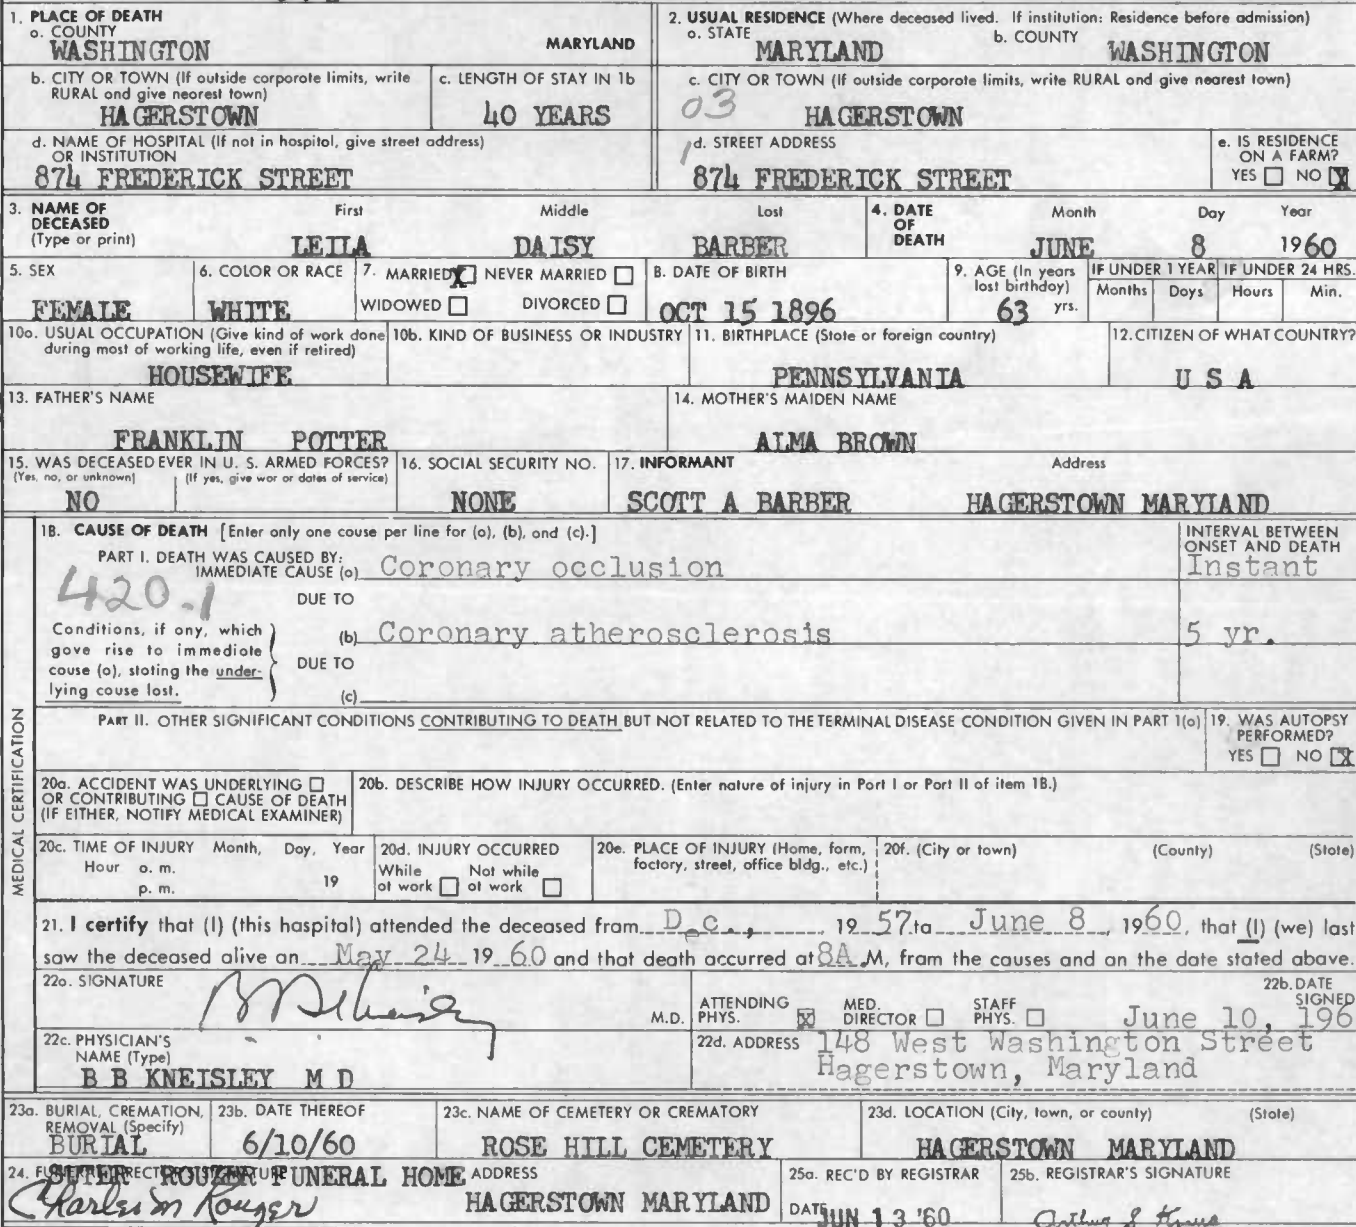 1. PLACE OF DEATH
a. COUNTY
WASHINGTON MARYLAND
2. USUAL RESIDENCE (Where deceased lived. If institution: Residence before admission)
a. STATE b. COUNTY
MARYLAND WASHINGTON
b. CITY OR TOWN (If outside corporate limits, write
RURAL and give nearest town)
HAGERSTOWN
c. LENGTH OF STAY IN 1b
40 YEARS
c. CITY OR TOWN (If outside corporate limits, write RURAL and give nearest town)
03 HAGERSTOWN
d. NAME OF HOSPITAL (If not in hospital, give street address)
OR INSTITUTION
874 FREDERICK STREET
d. STREET ADDRESS
1
874 FREDERICK STREET
e. IS RESIDENCE
ON A FARM?
YES ☐ NO ☒
3. NAME OF
DECEASED
(Type or print)
First Middle Last
LEILA DAISY BARBER
4. DATE
OF
DEATH
Month Day Year
JUNE 8 1960
5. SEX
FEMALE
6. COLOR OR RACE
WHITE
7. MARRIED ☒ NEVER MARRIED ☐
WIDOWED ☐ DIVORCED ☐
8. DATE OF BIRTH
OCT 15 1896
9. AGE (In years
last birthday)
63 yrs.
IF UNDER 1 YEAR IF UNDER 24 HRS.
Months Days Hours Min.
10a. USUAL OCCUPATION (Give kind of work done
during most of working life, even if retired)
HOUSEWIFE
10b. KIND OF BUSINESS OR INDUSTRY
11. BIRTHPLACE (State or foreign country)
PENNSYLVANIA
12. CITIZEN OF WHAT COUNTRY?
U S A
13. FATHER'S NAME
FRANKLIN POTTER
14. MOTHER'S MAIDEN NAME
ALMA BROWN
15. WAS DECEASED EVER IN U. S. ARMED FORCES?
(Yes, no, or unknown) (If yes, give war or dates of service)
NO
16. SOCIAL SECURITY NO.
NONE
17. INFORMANT Address
SCOTT A BARBER HAGERSTOWN MARYLAND
18. CAUSE OF DEATH [Enter only one cause per line for (a), (b), and (c).]
INTERVAL BETWEEN
ONSET AND DEATH
PART I. DEATH WAS CAUSED BY:
IMMEDIATE CAUSE (a) Coronary occlusion Instant
420.1
DUE TO
Conditions, if any, which
gave rise to immediate
cause (a), stating the under-
lying cause last.
(b) Coronary atherosclerosis 5 yr.
DUE TO
(c)
MEDICAL CERTIFICATION
PART II. OTHER SIGNIFICANT CONDITIONS CONTRIBUTING TO DEATH BUT NOT RELATED TO THE TERMINAL DISEASE CONDITION GIVEN IN PART 1(a)
19. WAS AUTOPSY
PERFORMED?
YES ☐ NO ☒
20a. ACCIDENT WAS UNDERLYING ☐
OR CONTRIBUTING ☐ CAUSE OF DEATH
(IF EITHER, NOTIFY MEDICAL EXAMINER)
20b. DESCRIBE HOW INJURY OCCURRED. (Enter nature of injury in Part I or Part II of item 18.)
20c. TIME OF INJURY Month, Day, Year
Hour a. m.
p. m. 19
20d. INJURY OCCURRED
While Not while
at work ☐ at work ☐
20e. PLACE OF INJURY (Home, farm,
factory, street, office bldg., etc.)
20f. (City or town) (County) (State)
21. I certify that (I) (this hospital) attended the deceased from D c., 19 57 to June 8, 1960, that (I) (we) last
saw the deceased alive on May 24 19 60 and that death occurred at 8A M, from the causes and on the date stated above.
22a. SIGNATURE
B B Kneisley M.D.
ATTENDING
PHYS. ☒
MED.
DIRECTOR ☐
STAFF
PHYS. ☐
22b. DATE
SIGNED
June 10, 196
22c. PHYSICIAN'S
NAME (Type)
B B KNEISLEY M D
22d. ADDRESS 148 West Washington Street
Hagerstown, Maryland
23a. BURIAL, CREMATION,
REMOVAL (Specify)
BURIAL
23b. DATE THEREOF
6/10/60
23c. NAME OF CEMETERY OR CREMATORY
ROSE HILL CEMETERY
23d. LOCATION (City, town, or county) (State)
HAGERSTOWN MARYLAND
24. FUNERAL DIRECTOR'S SIGNATURE ADDRESS
SUTER ROUZER FUNERAL HOME
Charles M Rouzer HAGERSTOWN MARYLAND
25a. REC'D BY REGISTRAR
DATE JUN 13 '60
25b. REGISTRAR'S SIGNATURE